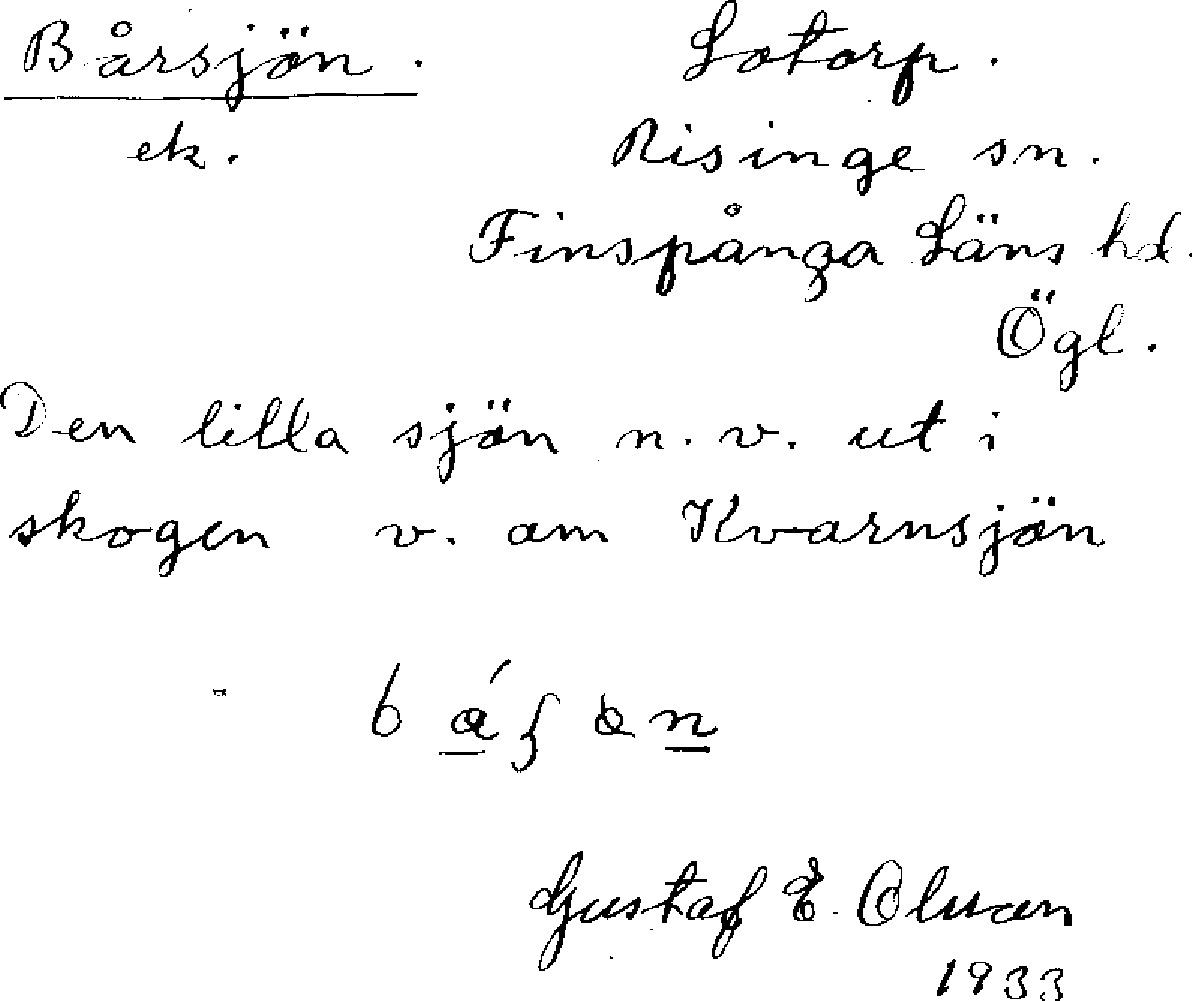 Bårsjön. Lotorp.
ek. Risinge sn.
Finspånga Läns hd.
Ögl.
Den lilla sjön n.v. ut i
skogen v. om Kvarnsjön
Gustaf E. Olsson
1933